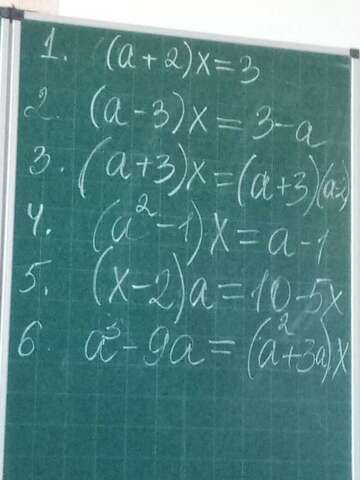 1. (a+2)x=3
2. (a-3)x=3-a
3. (a+3)x=(a+3)(a-2)
4. (a²-1)x=a-1
5. (x-2)a=10-5x
6. a³-9a=(a²+3a)x